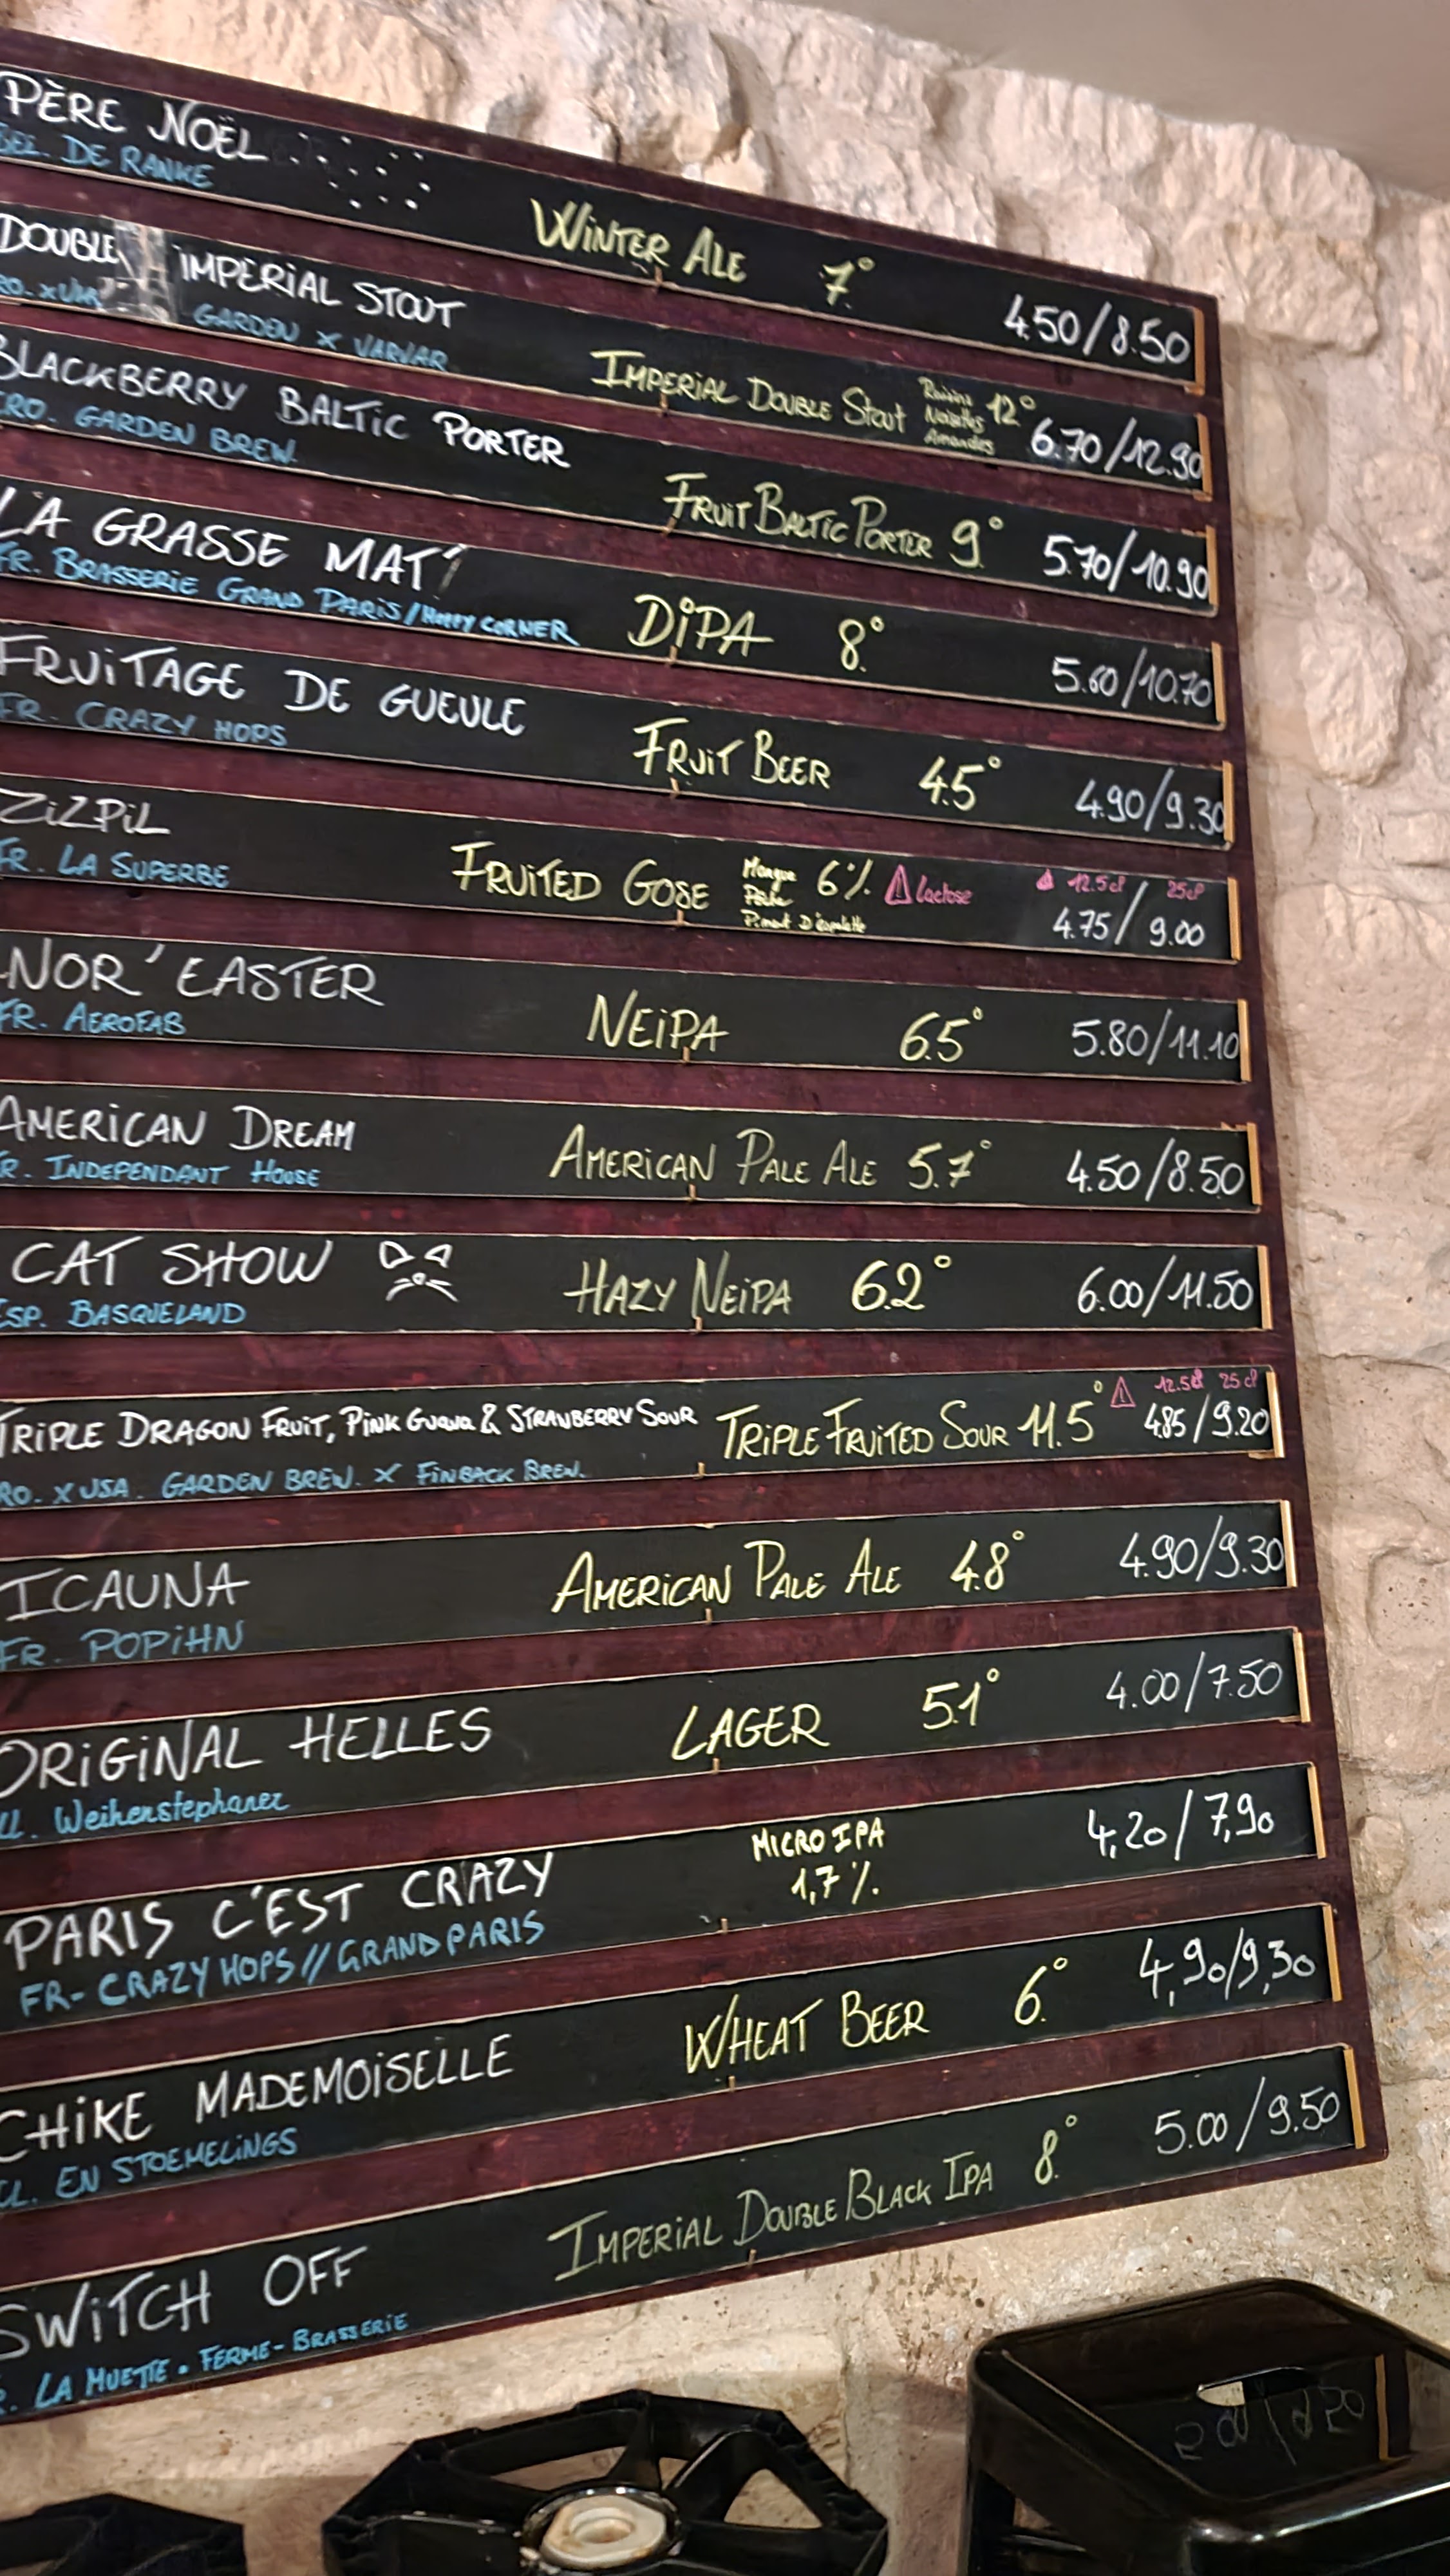 PÈRE NOËL
BEL. DE RANKE
WINTER ALE 7° 4.50/8.50
DOUBLE IMPERIAL STOUT
RO. x UKR GARDEN x VARVAR
IMPERIAL DOUBLE STOUT Raisins Noisettes Amandes 12° 6.70/12.90
BLACKBERRY BALTIC PORTER
RO. GARDEN BREW.
FRUIT BALTIC PORTER 9° 5.70/10.90
LA GRASSE MAT'
FR. BRASSERIE GRAND PARIS/HOPPY CORNER
DIPA 8° 5.60/10.70
FRUITAGE DE GUEULE
FR. CRAZY HOPS
FRUIT BEER 4.5° 4.90/9.30
ZIZPIL
FR. LA SUPERBE
FRUITED GOSE Mangue Pêche Piment D'espelette 6% ⚠ Lactose ⚠ 12.5cl 25cl 4.75/9.00
NOR'EASTER
FR. AEROFAB
NEIPA 6.5° 5.80/11.10
AMERICAN DREAM
FR. INDEPENDANT HOUSE
AMERICAN PALE ALE 5.7° 4.50/8.50
CAT SHOW
ESP. BASQUELAND
HAZY NEIPA 6.2° 6.00/11.50
TRIPLE DRAGON FRUIT, PINK GUAVA & STRAWBERRY SOUR
RO. x USA. GARDEN BREW. x FINBACK BREW.
TRIPLE FRUITED SOUR 11.5° ⚠ 12.5cl 25cl 4.85/9.20
ICAUNA
FR. POPIHN
AMERICAN PALE ALE 4.8° 4.90/9.30
ORIGINAL HELLES
LL. Weihenstephaner
LAGER 5.1° 4.00/7.50
PARIS C'EST CRAZY
FR- CRAZY HOPS // GRAND PARIS
MICRO IPA
1,7%. 4,20/7,90
CHIKE MADEMOISELLE
EN STOEMELINGS
WHEAT BEER 6° 4,90/9,30
SWITCH OFF
LA MUETTE. FERME-BRASSERIE
IMPERIAL DOUBLE BLACK IPA 8° 5.00/9.50